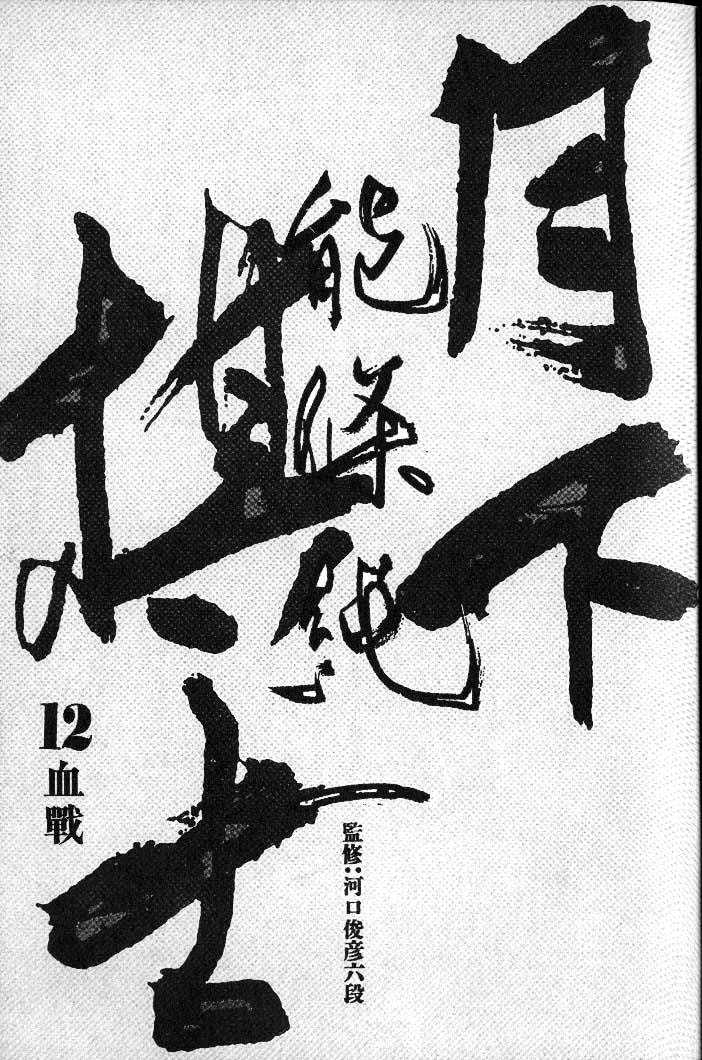 月下
棋士
能條純一
12
血戰
監修：河口俊彦六段